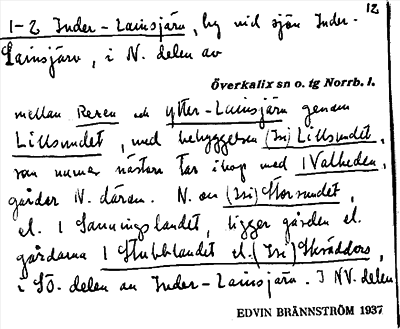 12
1-2 Inder-Lainsjärv, by vid sjön Inder-
Lainsjärv, i N. delen av
Överkalix sn o. tg Norrb. l.
mellan Rexen och Ytter-Lainsjärn genom
Lillsundet, med bebyggelsen (Isi) Lillsundet,
som numer nästan tar ihop med 1 Valheden,
gårdar N. däran. N. om (Isi) Storsundet,
el. 1 Sanningslandet, ligger gården el.
gårdarna 1 Stubblandet el. (Isi) Skräddors,
i SO. delen av Inder-Lainsjärn. I NV. delen
EDVIN BRÄNNSTRÖM 1937